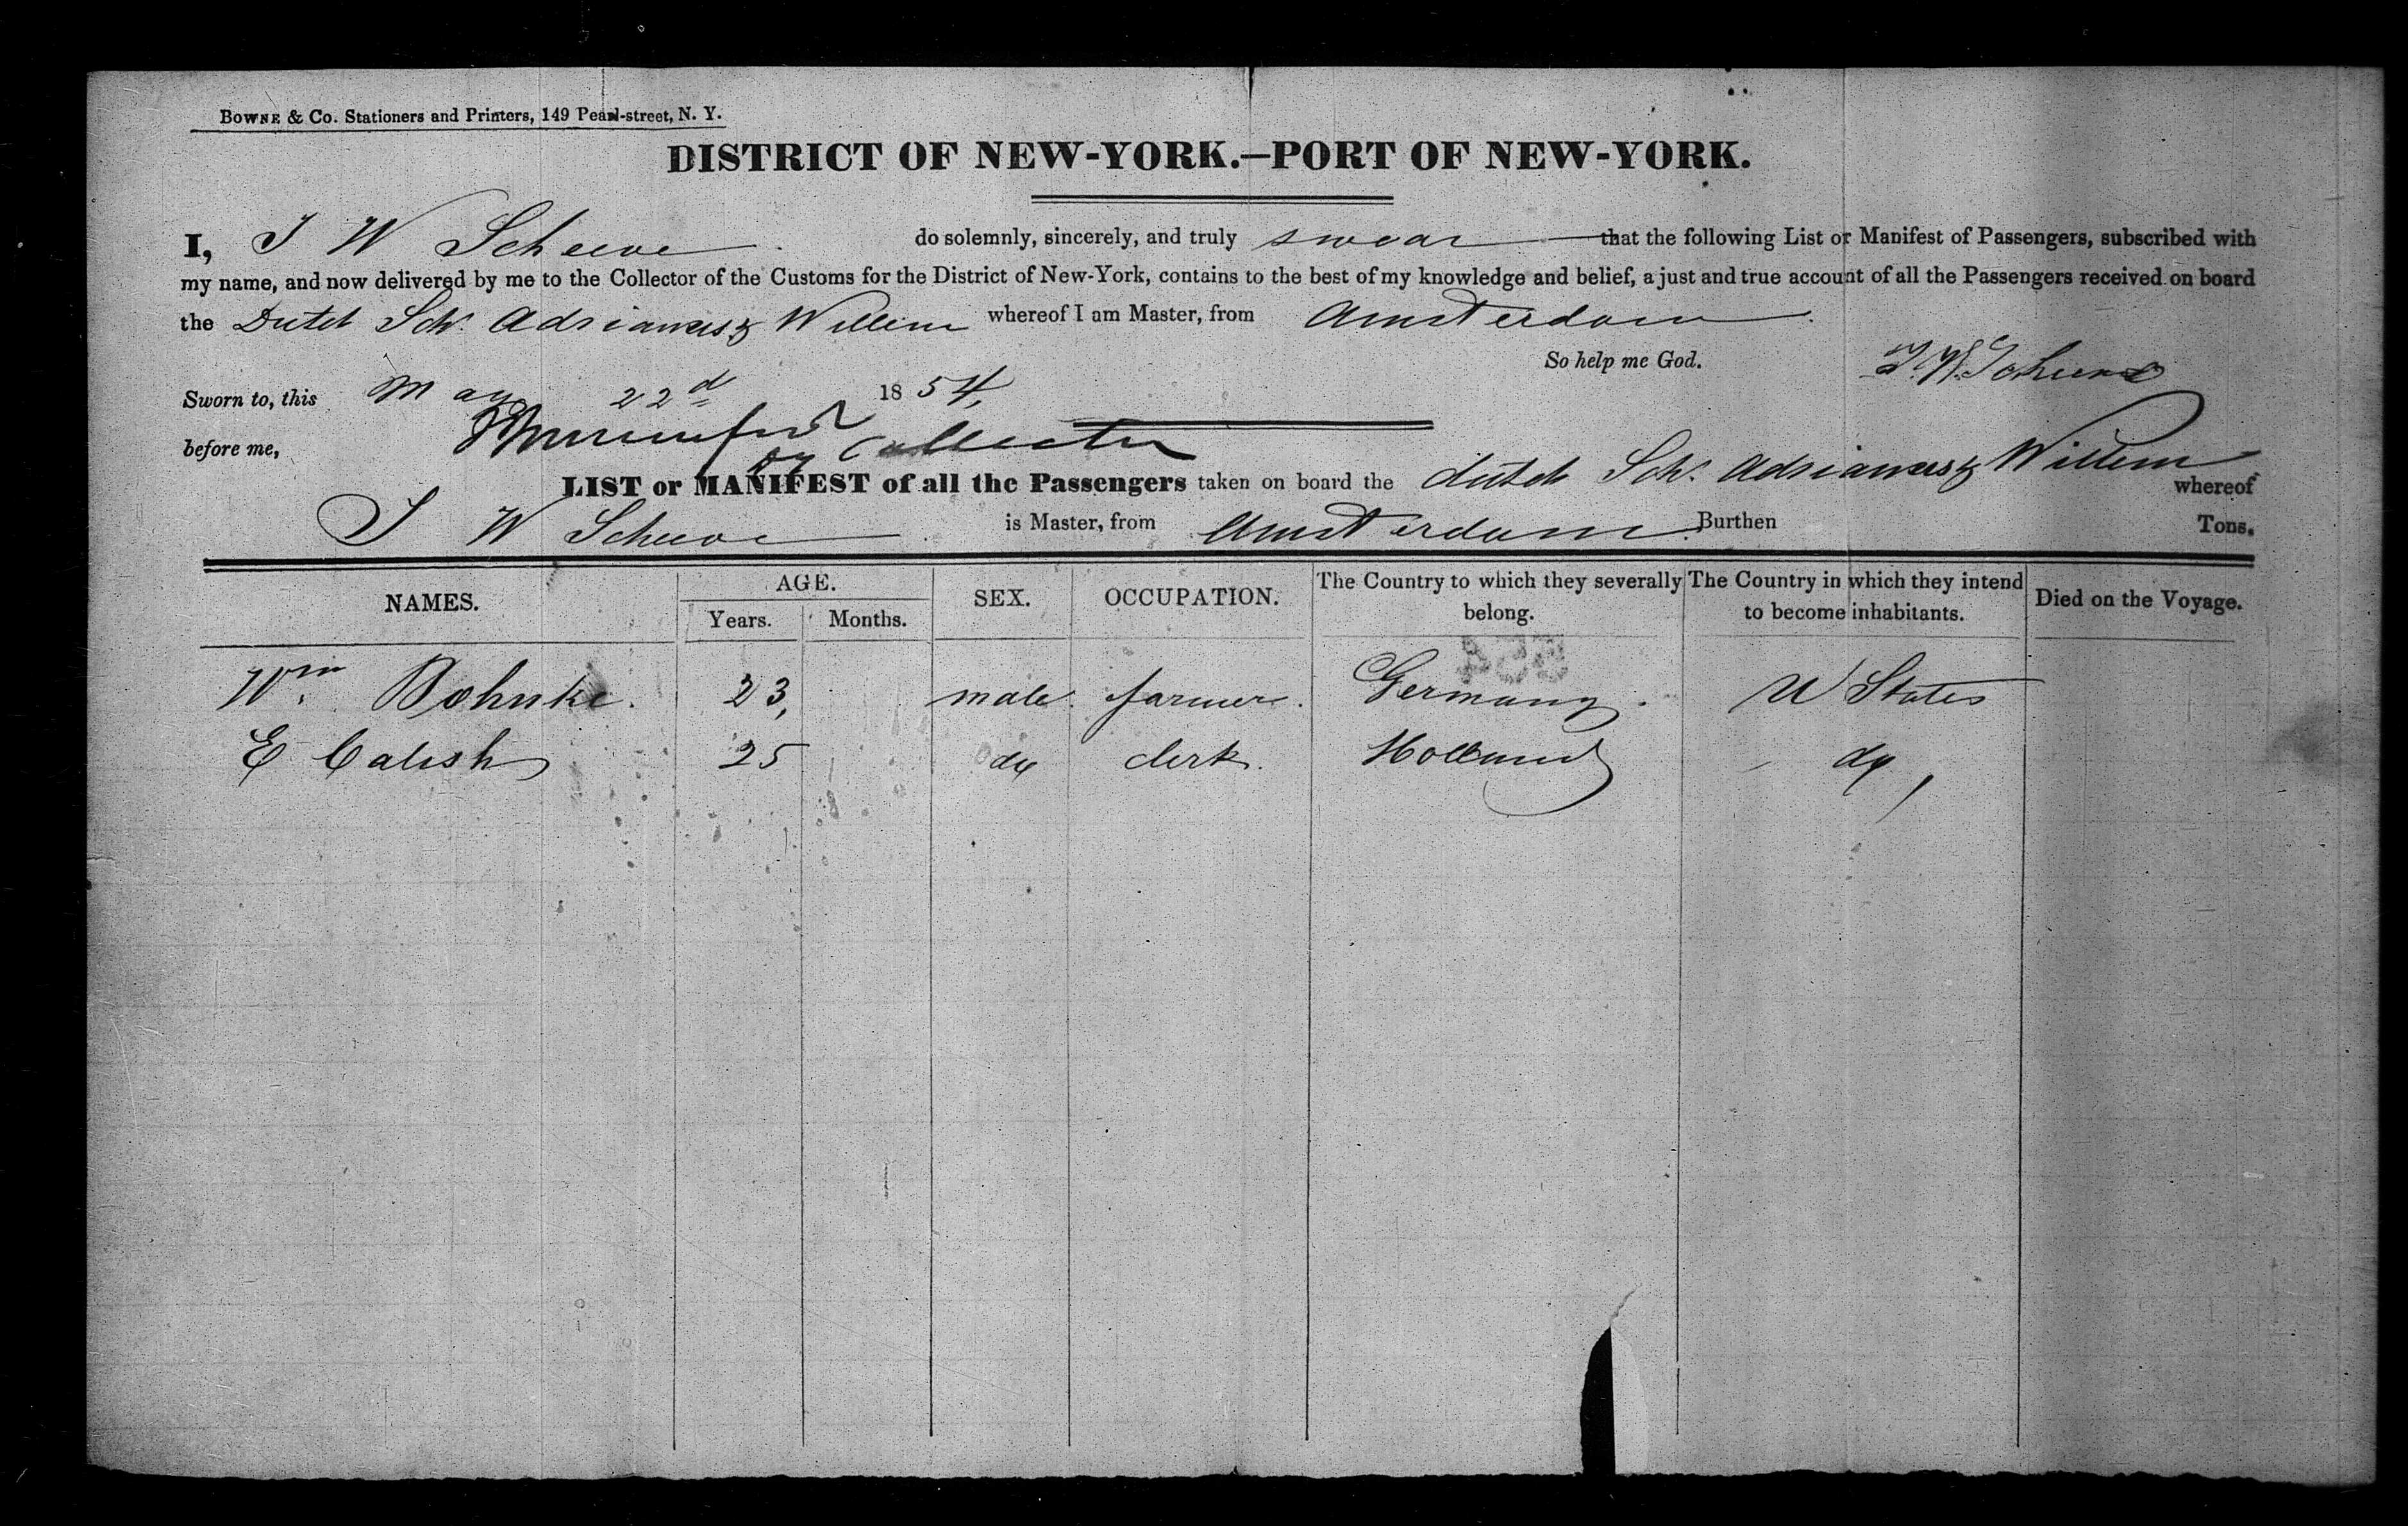 BOWNE & Co. Stationers and Printers, 149 Pearl-street, N. Y.
DISTRICT OF NEW-YORK.—PORT OF NEW-YORK.
I, J W Scheeve do solemnly, sincerely, and truly swear that the following List or Manifest of Passengers, subscribed with
my name, and now delivered by me to the Collector of the Customs for the District of New-York, contains to the best of my knowledge and belief, a just and true account of all the Passengers received on board
the Dutch Sch. Adrianus & Willem whereof I am Master, from Amsterdam.
So help me God.
Sworn to, this May 22d 1854,
before me, Collector
LIST or MANIFEST of all the Passengers taken on board the dutch Sch. Adrianus & Willem whereof
J W Scheeve is Master, from Amsterdam. Burthen Tons.
NAMES. AGE. SEX. OCCUPATION. The Country to which they severally belong. The Country in which they intend to become inhabitants. Died on the Voyage.
Years. Months.
Wm. Bohnke. 23, male. farmer. Germany. U States
E Calish 25 do clerk. Holland do